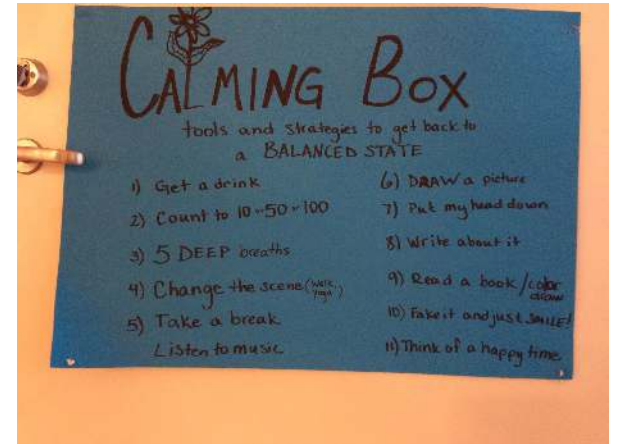 CALMING BOX
tools and strategies to get back to
a BALANCED STATE
1) Get a drink
2) Count to 10-50-100
3) 5 DEEP breaths
4) Change the scene (walk, yoga)
5) Take a break
Listen to music
6) DRAW a picture
7) Put my head down
8) Write about it
9) Read a book/color
draw
10) Fake it and just SMILE!
11) Think of a happy time